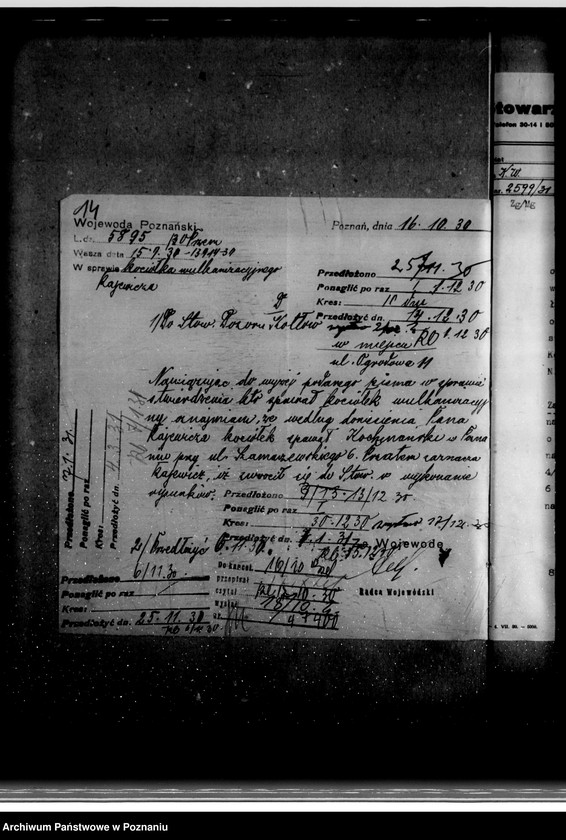 14
Wojewoda Poznański
L.dz. 5895/30 Przem
Wasza data 15.9.30 -13914-30
W sprawie kociołka wulkanizacyjnego
Kajewicza
Poznań, dnia 16.10.30
Przedłożono 25/11.30
Ponaglić po raz 1 1.12 30
Kres: 10 dni
Przedłożyć dn. 14.12.30
1/ Do Stow. Dozoru Kotłów
w miejscu
ul. Ogrodowa 11
Nawiązując do wyżej podanego pisma w sprawie
stwierdzenia kto spawał kociołek wulkanizacyj
ny oznajmiam, że według doniesienia Pana
Kajewicza kociołek spawał Kochmański w Pozna
niu przy ul. Szamarzewskiego 6. Poza tem zaznacza
Kajewicz, iż zwrócił się do Stow. o wykonanie
rysunków.
Przedłożono 9/15-13/12 30
Ponaglić po raz
Kres: 30.12 30
Przedłożyć dn. 7.1.31
Przedłożono 7.1.31.
Ponaglić po raz
Kres:
Przedłożyć dn.
2/ Przedłożyć 6.11.30.
Za Wojewodę
Radca Wojewódzki
Do kancel. 16/10
Przepisał
czytał 10.30
wysłano 18/10
Przedłożono 6/11.30
Ponaglić po raz
Kres:
Przedłożyć dn. 25.11.30
towarz
Telefon 30-14 i
K.W.
nr. 2599/31
zg/Mg
4. VII. 30. — 5000.
Archiwum Państwowe w Poznaniu